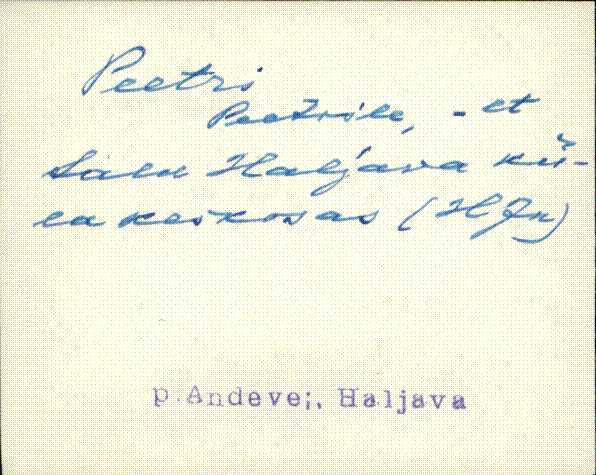 Peetri
Peetrile, - et
talu Haljava kü-
la keskosas (HJn)
p.Andevei, Haljava